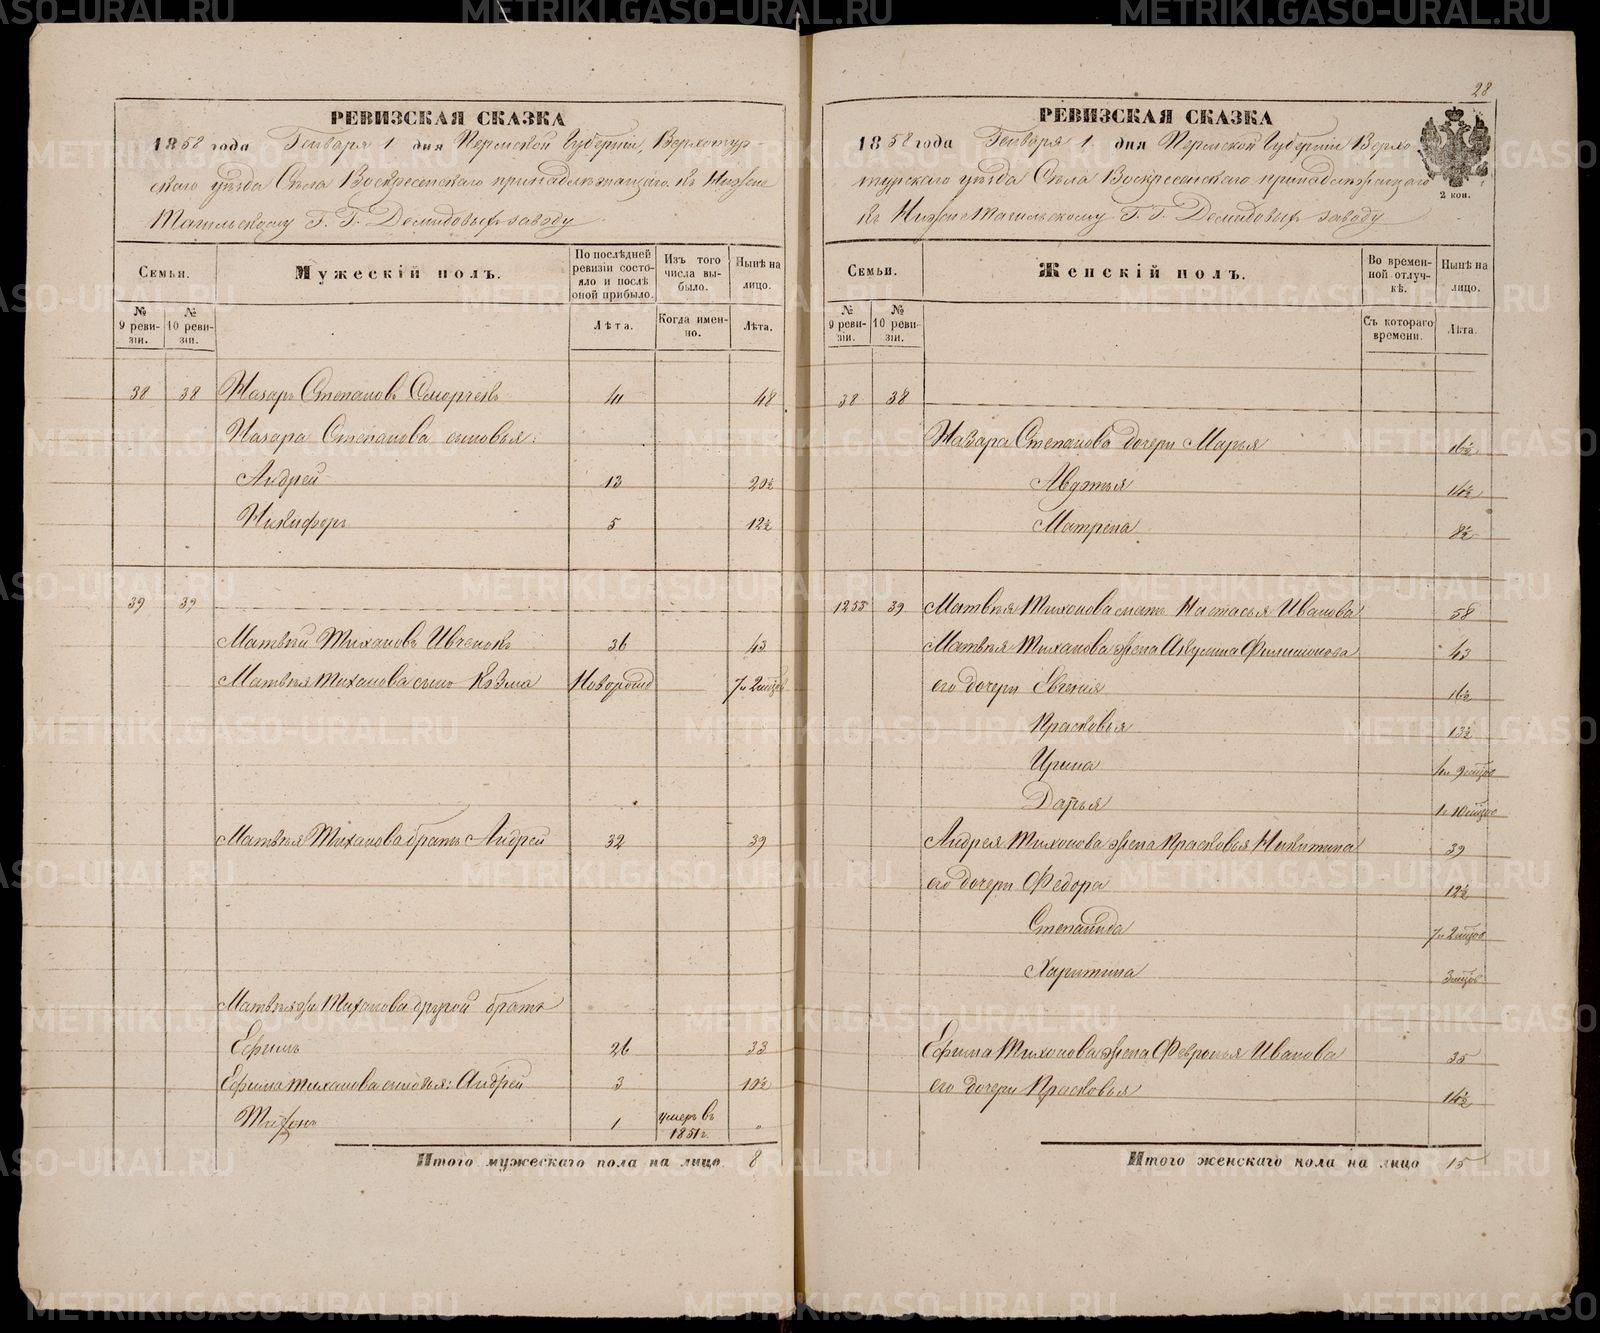 РЕВИЗСКАЯ СКАЗКА
1858 года Генваря 1 дня Пермской Губерніи, Верхотур-
скаго уѣзда Села Воскресенскаго принадлежащаго къ Нижне
Тагильскому Г. Г. Демидовыхъ заводу
Семьи.
Мужескій полъ.
По послѣдней ревизіи состояло и послѣ оной прибыло.
Изъ того числа выбыло.
Нынѣ на лицо.
№ 9 ревизіи.
№ 10 ревизіи.
Лѣта.
Когда именно.
Лѣта.
38 38 Назаръ Степановъ 41 48
Назара Степанова сыновья:
Андрей 13 20½
Никифоръ 5 12½
39 39
Матвѣй Тихановъ 36 43
Матвѣя Тиханова сынъ Козма Новорожд 7 и 2 мѣсяц
Матвѣя Тиханова братъ Андрей 32 39
Матвѣя жъ Тиханова другой братъ
Ефимъ 26 33
Ефима Тиханова сыновья: Андрей 3 10½
Тихонъ 1 умеръ въ 1851 г. "
Итого мужескаго пола на лицо 8
28
РЕВИЗСКАЯ СКАЗКА
1858 года Генваря 1 дня Пермской Губерніи Верхо
турскаго уѣзда Села Воскресенскаго принадлежащаго
къ Нижне Тагильскому Г. Г. Демидовыхъ заводу
2 коп.
Семьи.
Женскій полъ.
Во временной отлучкѣ.
Нынѣ на лицо.
№ 9 ревизіи.
№ 10 ревизіи.
Съ котораго времени.
Лѣта.
38 38
Назара Степанова дочери Марья 16½
Авдотья 14½
Матрена 8½
1255 39 Матвѣя Тихонова мать Настасья Иванова 58
Матвѣя Тиханова жена Августа Филимонова 43
его дочери Евгенія 16½
Прасковья 13½
Ирина 4 и 9 мѣсяц
Дарья 1 и 10 мѣсяц
Андрея Тихонова жена Прасковья Никитина 39
его дочери Федора 12½
Степанида 7 и 2 мѣсяц
Харитина 3 мѣсяц
Ефима Тихонова жена Февронья Иванова 35
его дочери Прасковья 14½
Итого женскаго пола на лицо 15
METRIKI.GASO-URAL.RU